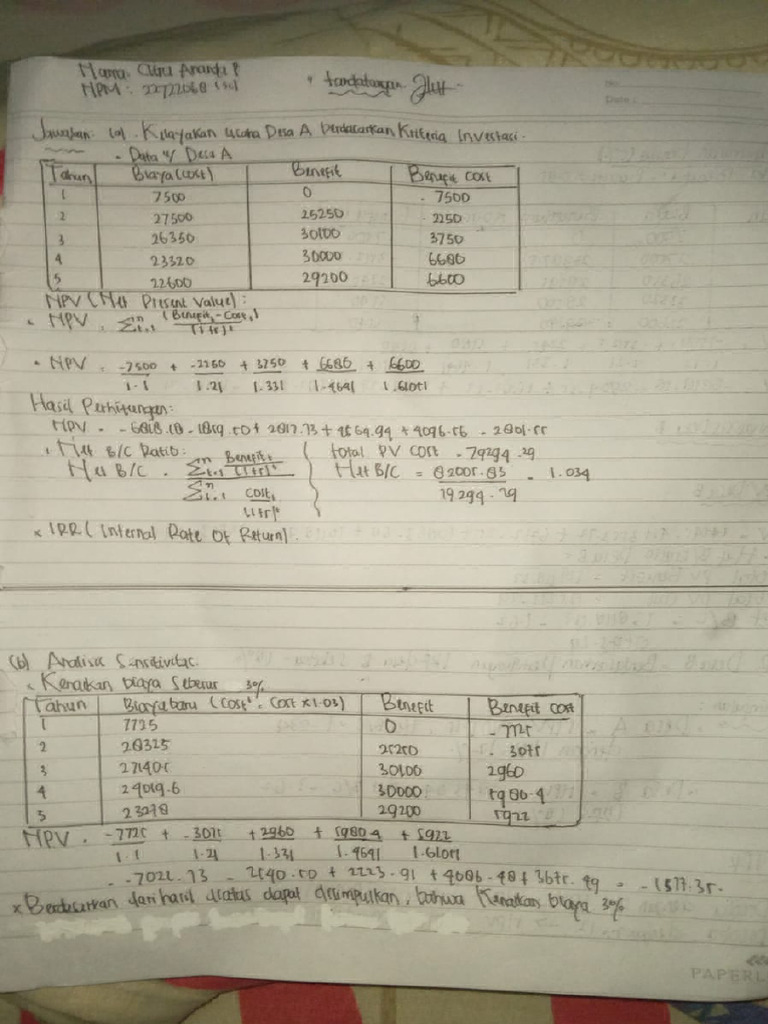 Nama: Citra Ananda P
NPM: 22722068 * tandatangan
Jawaban: (a). Kelayakan usaha Desa A berdasarkan Kriteria Investasi.
- Data u/ Desa A
Tahun Biaya (cost) Benefit Benefit cost
1 7500 0 - 7500
2 27500 25250 - 2250
3 26350 30100 3750
4 23320 30000 6680
5 22600 29200 6600
NPV (Net Present Value):
• NPV = Σⁿt=1 (Benefit - Cost) / (1+r)t
• NPV = -7500/1.1 + -2250/1.21 + 3750/1.331 + 6680/1.4641 + 6600/1.61051
Hasil Perhitungan:
NPV = - 6818.18 - 1859.50 + 2817.73 + 4564.94 + 4096.56 = 2801.55
• Net B/C Ratio:
Net B/C = Σⁿt=1 Benefit / (1+r)t / Σⁿt=1 cost / (1+r)t
total PV cost = 79294.29
Net B/C = 82005.83 / 79294.29 = 1.034
* IRR (Internal Rate Of Return).
(b) Analisis Sensitivitas.
• Kenaikan biaya Sebesar 3%
Tahun Biaya baru (Cost' = Cost x 1.03) Benefit Benefit cost
1 7725 0 - 7725
2 28325 25250 - 3075
3 27140.5 30100 2960
4 24019.6 30000 5980.4
5 23278 29200 5922
NPV = -7725/1.1 + -3075/1.21 + 2960/1.331 + 5980.4/1.4641 + 5922/1.61051
= -7022.73 - 2540.50 + 2223.91 + 4086.48 + 3675.99 = -1577.35.
* Berdasarkan dari hasil diatas dapat disimpulkan, bahwa Kenaikan biaya 3%
PAPERL